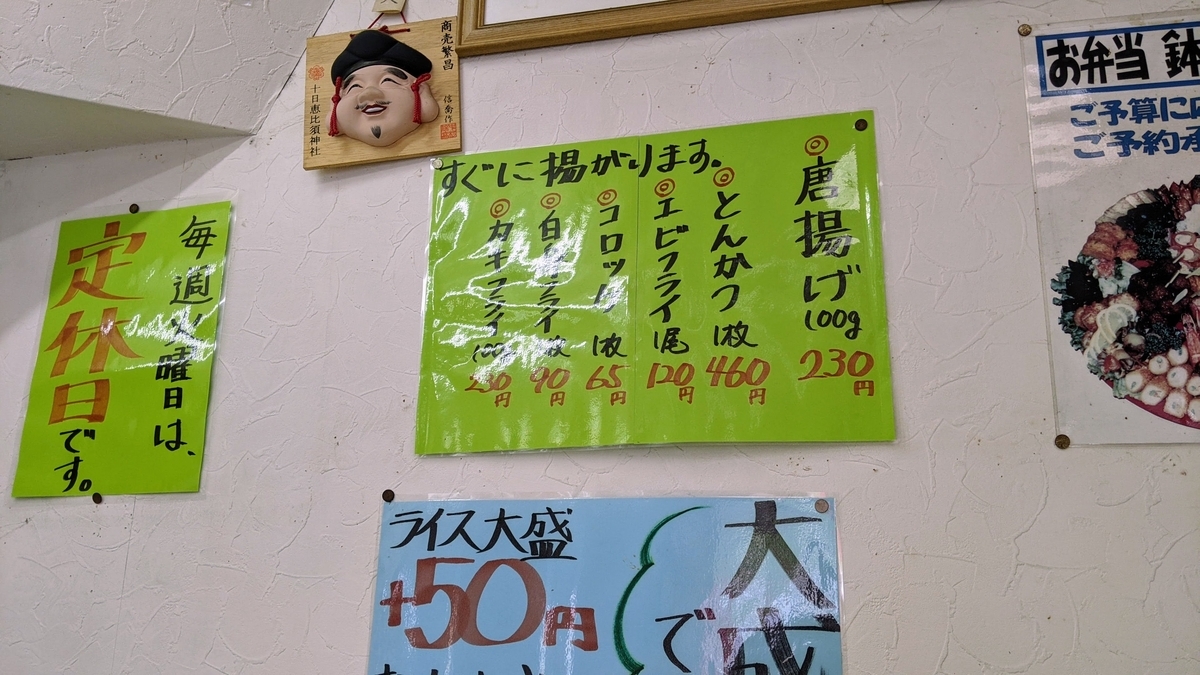 商売繁昌
信斎作
十日恵比須神社
毎週火曜日は、
定休日
です。
すぐに揚がります。
◎唐揚げ100g 230円
◎とんかつ1枚 460円
◎エビフライ1尾 120円
◎コロッケ1枚 65円
◎白身フライ1枚 90円
◎カキフライ100g 230円
お弁当 鉢
ご予算に
ご予約
ライス大盛
+50円
大盛
で